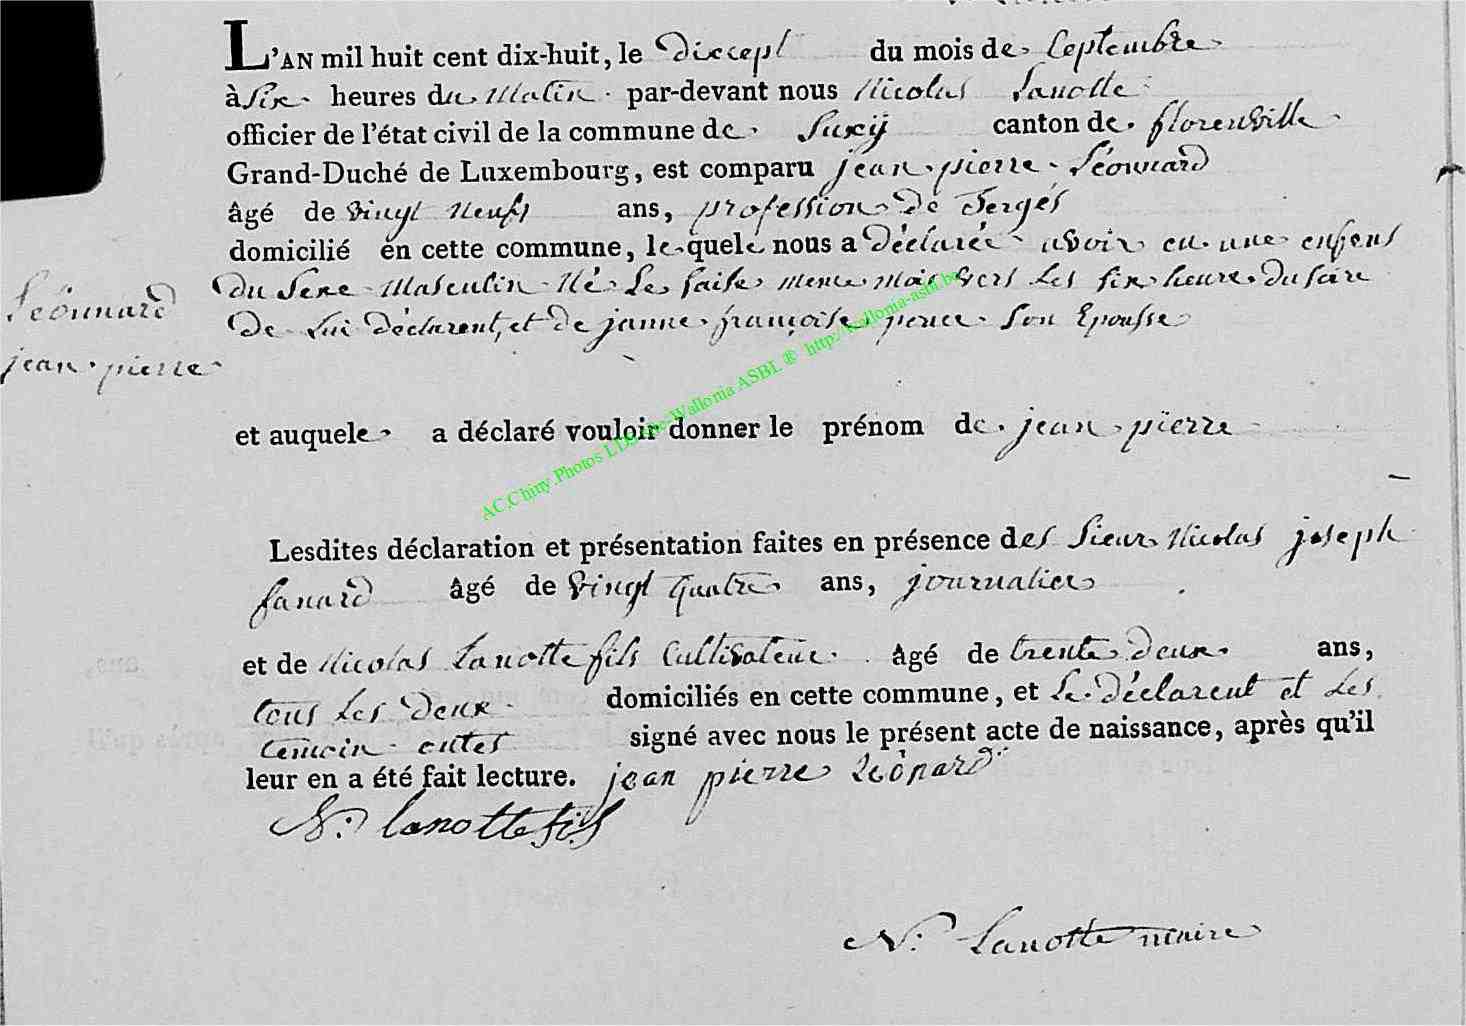 L'AN mil huit cent dix-huit, le diccept du mois de Septembre
à Six heures du Matin par-devant nous Nicolas Lanotte
officier de l'état civil de la commune de Suxÿ canton de florenville
Grand-Duché de Luxembourg, est comparu jean pierre Léonnard
âgé de vingt neufs ans, profession de Bergés
domicilié en cette commune, lequele nous a déclarée avoir eu une enfens
du Sexe Masculin Né Le meme mois vers Les six heure du soire
De Lui déclarent, et de janne françoise Son Epousse
Léonnard
jean pierre
et auquele a déclaré vouloir donner le prénom de jean pierre
AC.Chiny.Photos Wallonia ASBL ® http://wallonia-asbl.be
Lesdites déclaration et présentation faites en présence des Sieur Nicolas joseph
fanard âgé de vingt quatre ans, journalier
et de Nicolas Lanotte fils Cultivateur âgé de trente deux ans,
tous Les deux domiciliés en cette commune, et Le déclarent et Les
temoin signé avec nous le présent acte de naissance, après qu'il
leur en a été fait lecture. jean pierre Léonard
N. lanotte fils
N. Lanotte maire